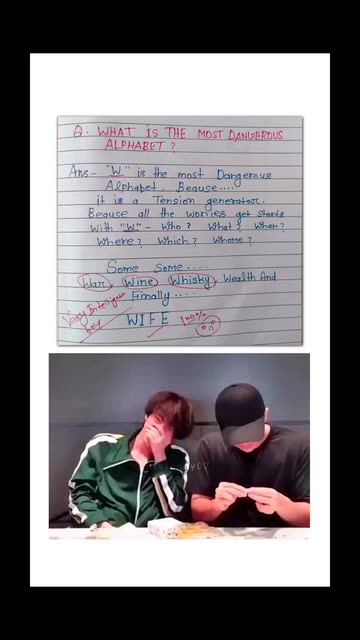 Q. WHAT IS THE MOST DANGEROUS
ALPHABET?
Ans- "W" is the most Dangerous
Alphabet, Beause....
it is a Tension generator.
Beause all the worries get starts
With "W" - Who? What? When?
Where? Which? Whome?
Some some....
War, Wine Whisky Wealth And
Finally.....
Very Intelligen
boy
WIFE
100%